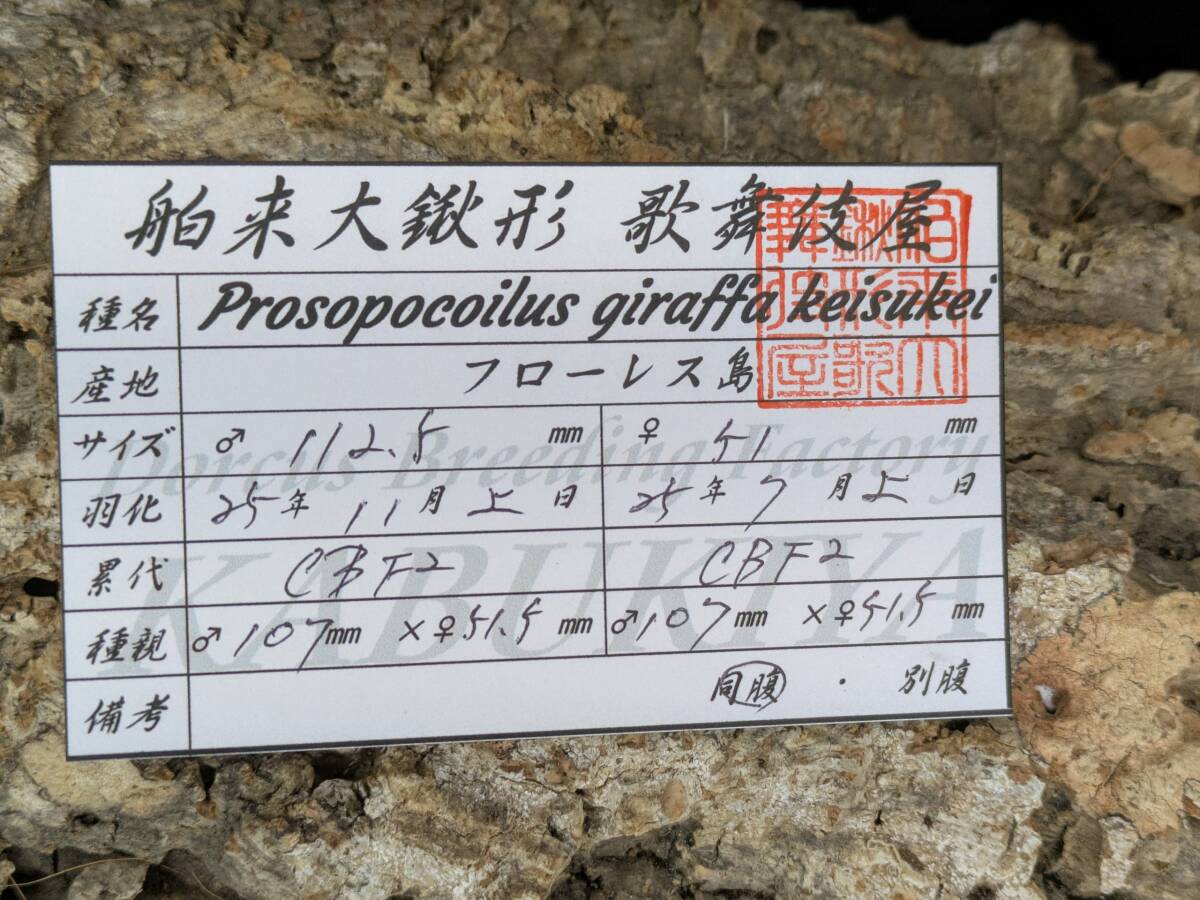 舶来大鍬形 歌舞伎屋
種名 Prosopocoilus giraffa keisukei
産地 フローレス島
サイズ ♂ 112.5 mm ♀ 51 mm
羽化 25年 11月 上日 25年 7月 上日
累代 CBF2 CBF2
種親 ♂107mm ×♀51.5mm ♂107mm ×♀51.5mm
備考 同腹 ・ 別腹
Dorcus Breeding Factory
KABUKIYA
舶来大
鍬形歌
舞伎屋